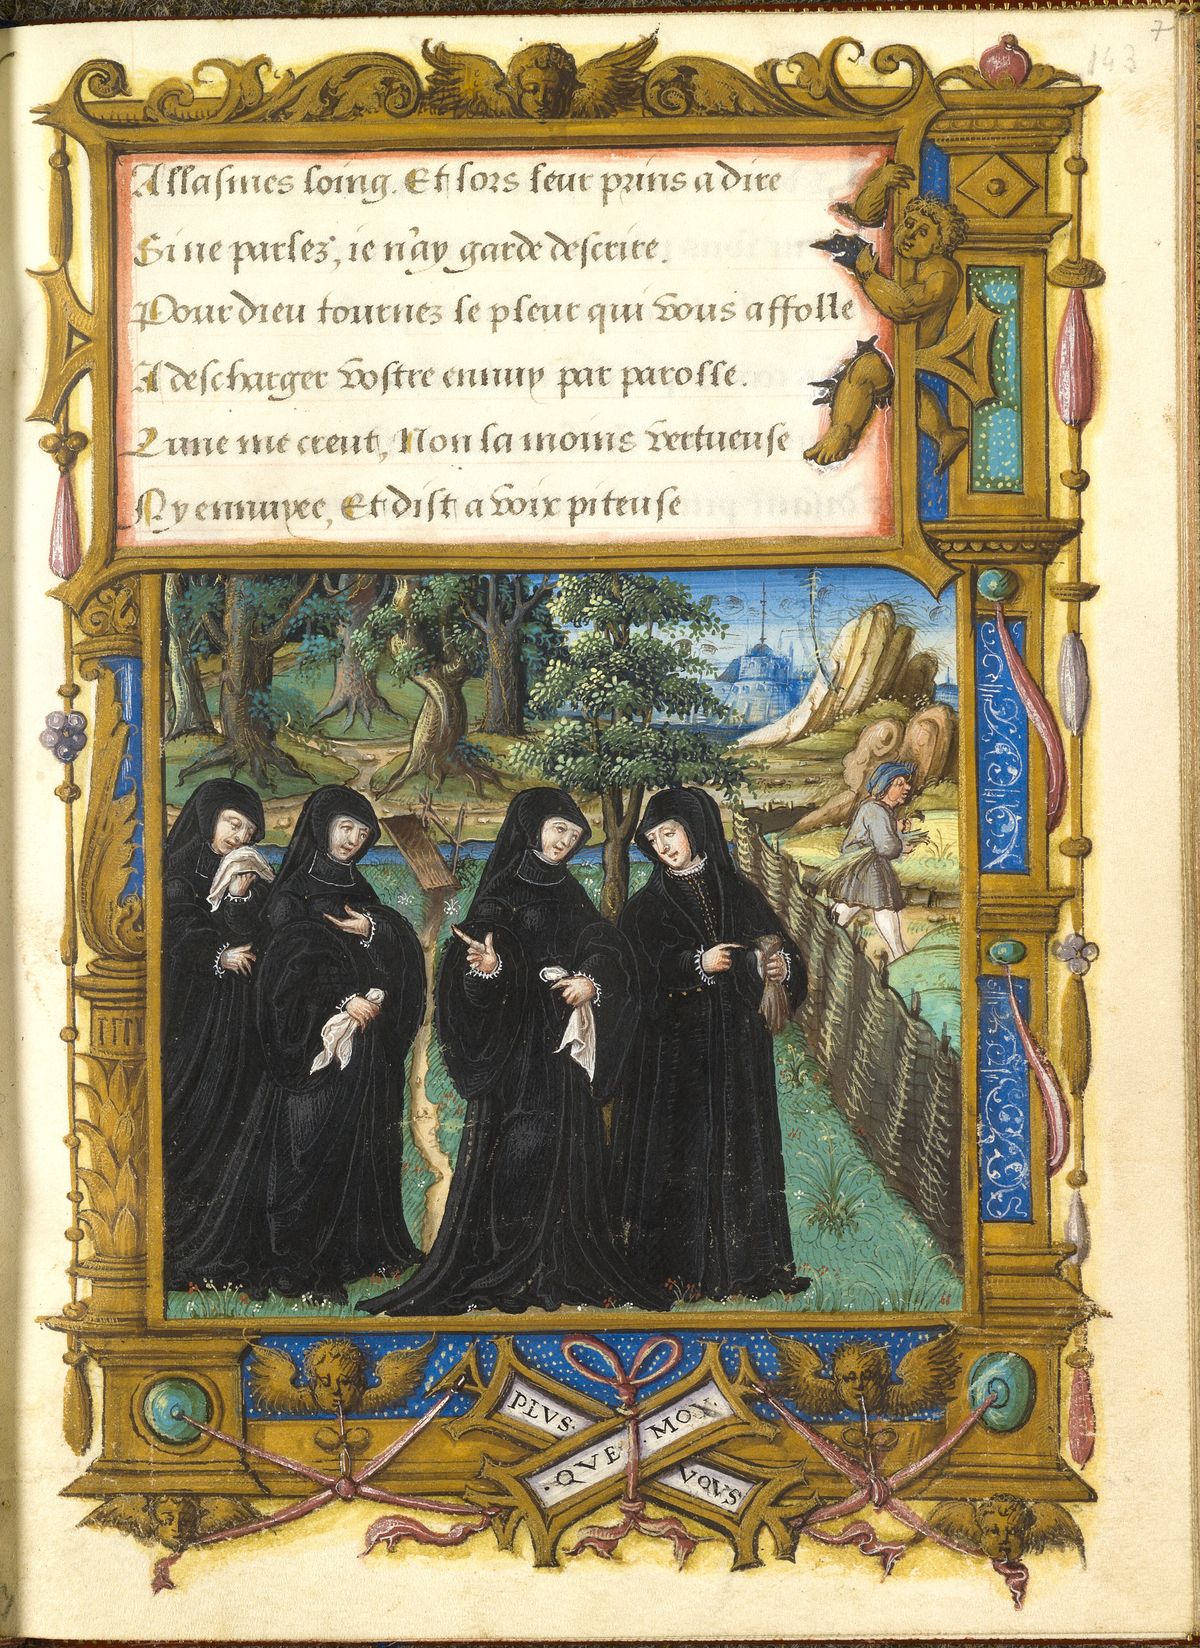 7
143
Allasmes loing. Et lors leur prins a dire
Si ne parlez, ie n'ay garde descrire.
Pour dieu tournez le pleur qui vous affolle
A descharger vostre ennuy par parolle.
Lune me creut, Non la moins vertueuse
Ny ennuyee, Et dist a voix piteuse
PLVS.
.QVE.MOY.
VOVS